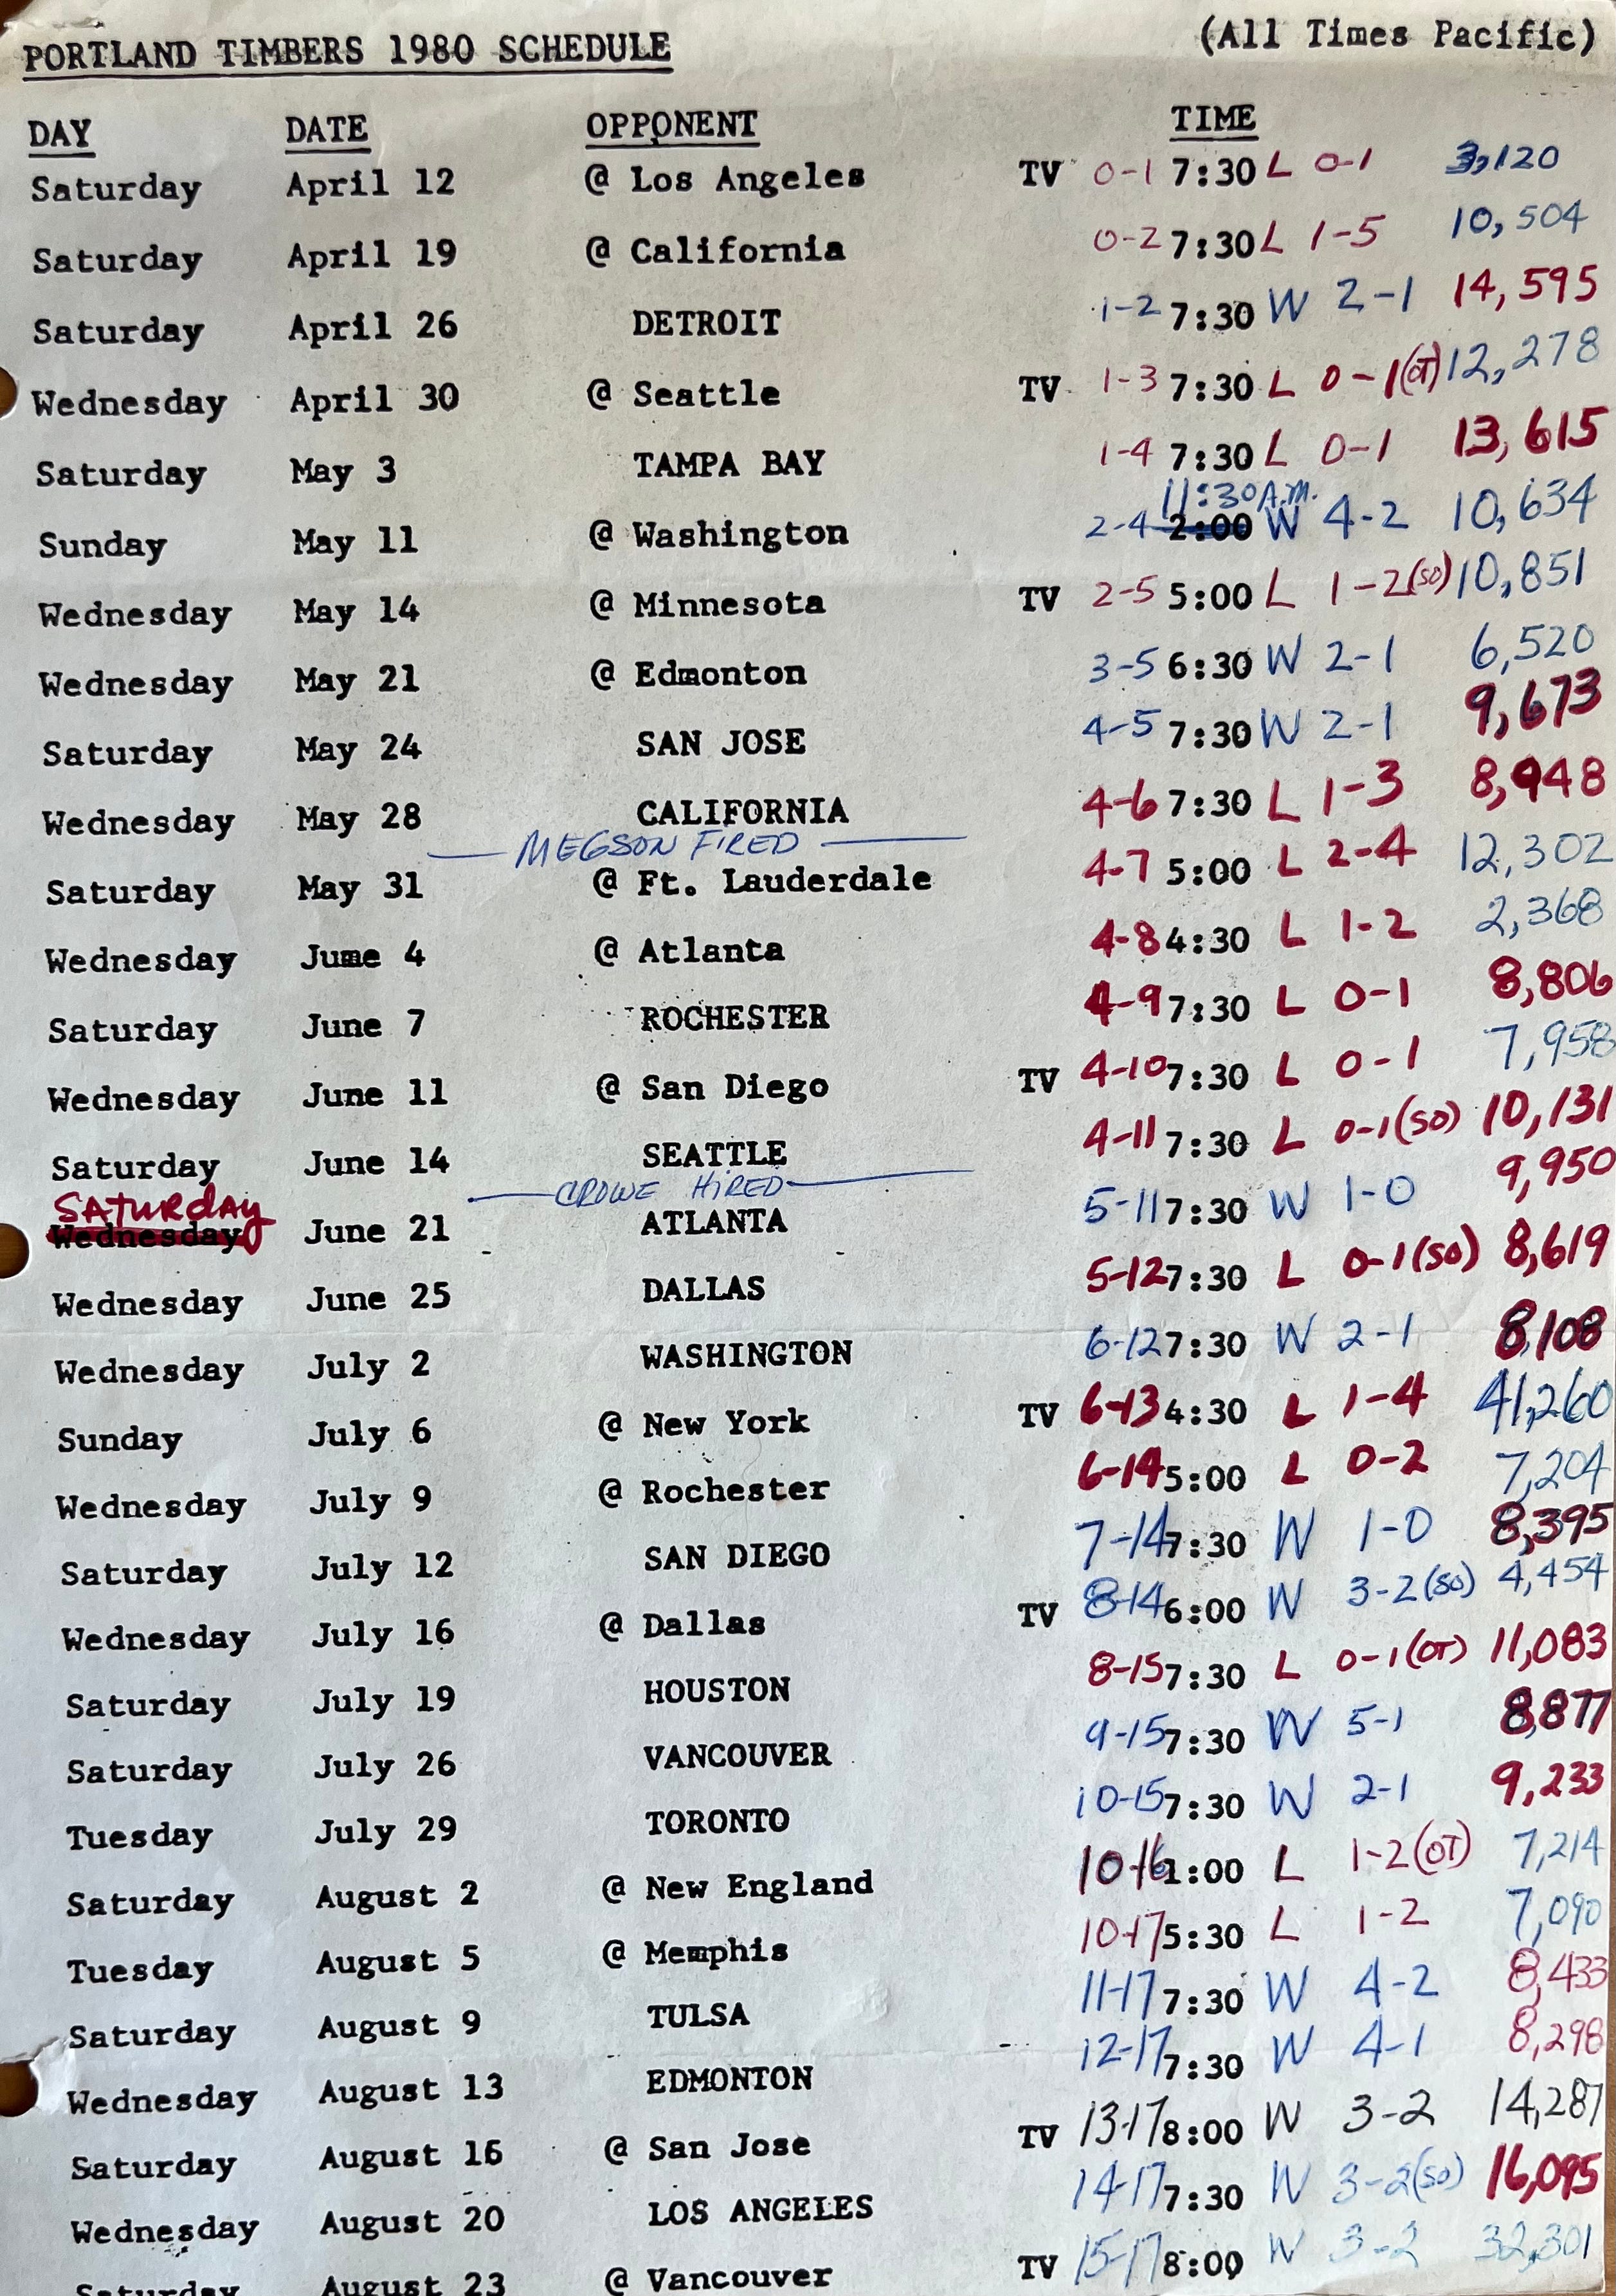 PORTLAND TIMBERS 1980 SCHEDULE (All Times Pacific)
DAY DATE OPPONENT TIME
Saturday April 12 @ Los Angeles TV 0-1 7:30 L 0-1 3,120
Saturday April 19 @ California 0-2 7:30 L 1-5 10,504
Saturday April 26 DETROIT 1-2 7:30 W 2-1 14,595
Wednesday April 30 @ Seattle TV 1-3 7:30 L 0-1(OT) 12,278
Saturday May 3 TAMPA BAY 1-4 7:30 L 0-1 13,615
11:30 A.M.
Sunday May 11 @ Washington 2-4 2:00 W 4-2 10,634
Wednesday May 14 @ Minnesota TV 2-5 5:00 L 1-2(SO) 10,851
Wednesday May 21 @ Edmonton 3-5 6:30 W 2-1 6,520
Saturday May 24 SAN JOSE 4-5 7:30 W 2-1 9,673
Wednesday May 28 CALIFORNIA 4-6 7:30 L 1-3 8,948
MEGSON FIRED
Saturday May 31 @ Ft. Lauderdale 4-7 5:00 L 2-4 12,302
Wednesday June 4 @ Atlanta 4-8 4:30 L 1-2 2,368
Saturday June 7 ROCHESTER 4-9 7:30 L 0-1 8,806
Wednesday June 11 @ San Diego TV 4-10 7:30 L 0-1 7,958
Saturday June 14 SEATTLE 4-11 7:30 L 0-1(SO) 10,131
SATURDAY CROWE HIRED
Wednesday June 21 ATLANTA 5-11 7:30 W 1-0 9,950
Wednesday June 25 DALLAS 5-12 7:30 L 0-1(SO) 8,619
Wednesday July 2 WASHINGTON 6-12 7:30 W 2-1 8,108
Sunday July 6 @ New York TV 6-13 4:30 L 1-4 41,260
Wednesday July 9 @ Rochester 6-14 5:00 L 0-2 7,204
Saturday July 12 SAN DIEGO 7-14 7:30 W 1-0 8,395
Wednesday July 16 @ Dallas TV 8-14 6:00 W 3-2(SO) 4,454
Saturday July 19 HOUSTON 8-15 7:30 L 0-1(OT) 11,083
Saturday July 26 VANCOUVER 9-15 7:30 W 5-1 8,877
Tuesday July 29 TORONTO 10-15 7:30 W 2-1 9,233
Saturday August 2 @ New England 10-16 1:00 L 1-2(OT) 7,214
Tuesday August 5 @ Memphis 10-17 5:30 L 1-2 7,090
Saturday August 9 TULSA 11-17 7:30 W 4-2 8,433
Wednesday August 13 EDMONTON 12-17 7:30 W 4-1 8,298
Saturday August 16 @ San Jose TV 13-17 8:00 W 3-2 14,287
Wednesday August 20 LOS ANGELES 14-17 7:30 W 3-2(SO) 16,095
Saturday August 23 @ Vancouver TV 15-17 8:00 W 3-2 32,301